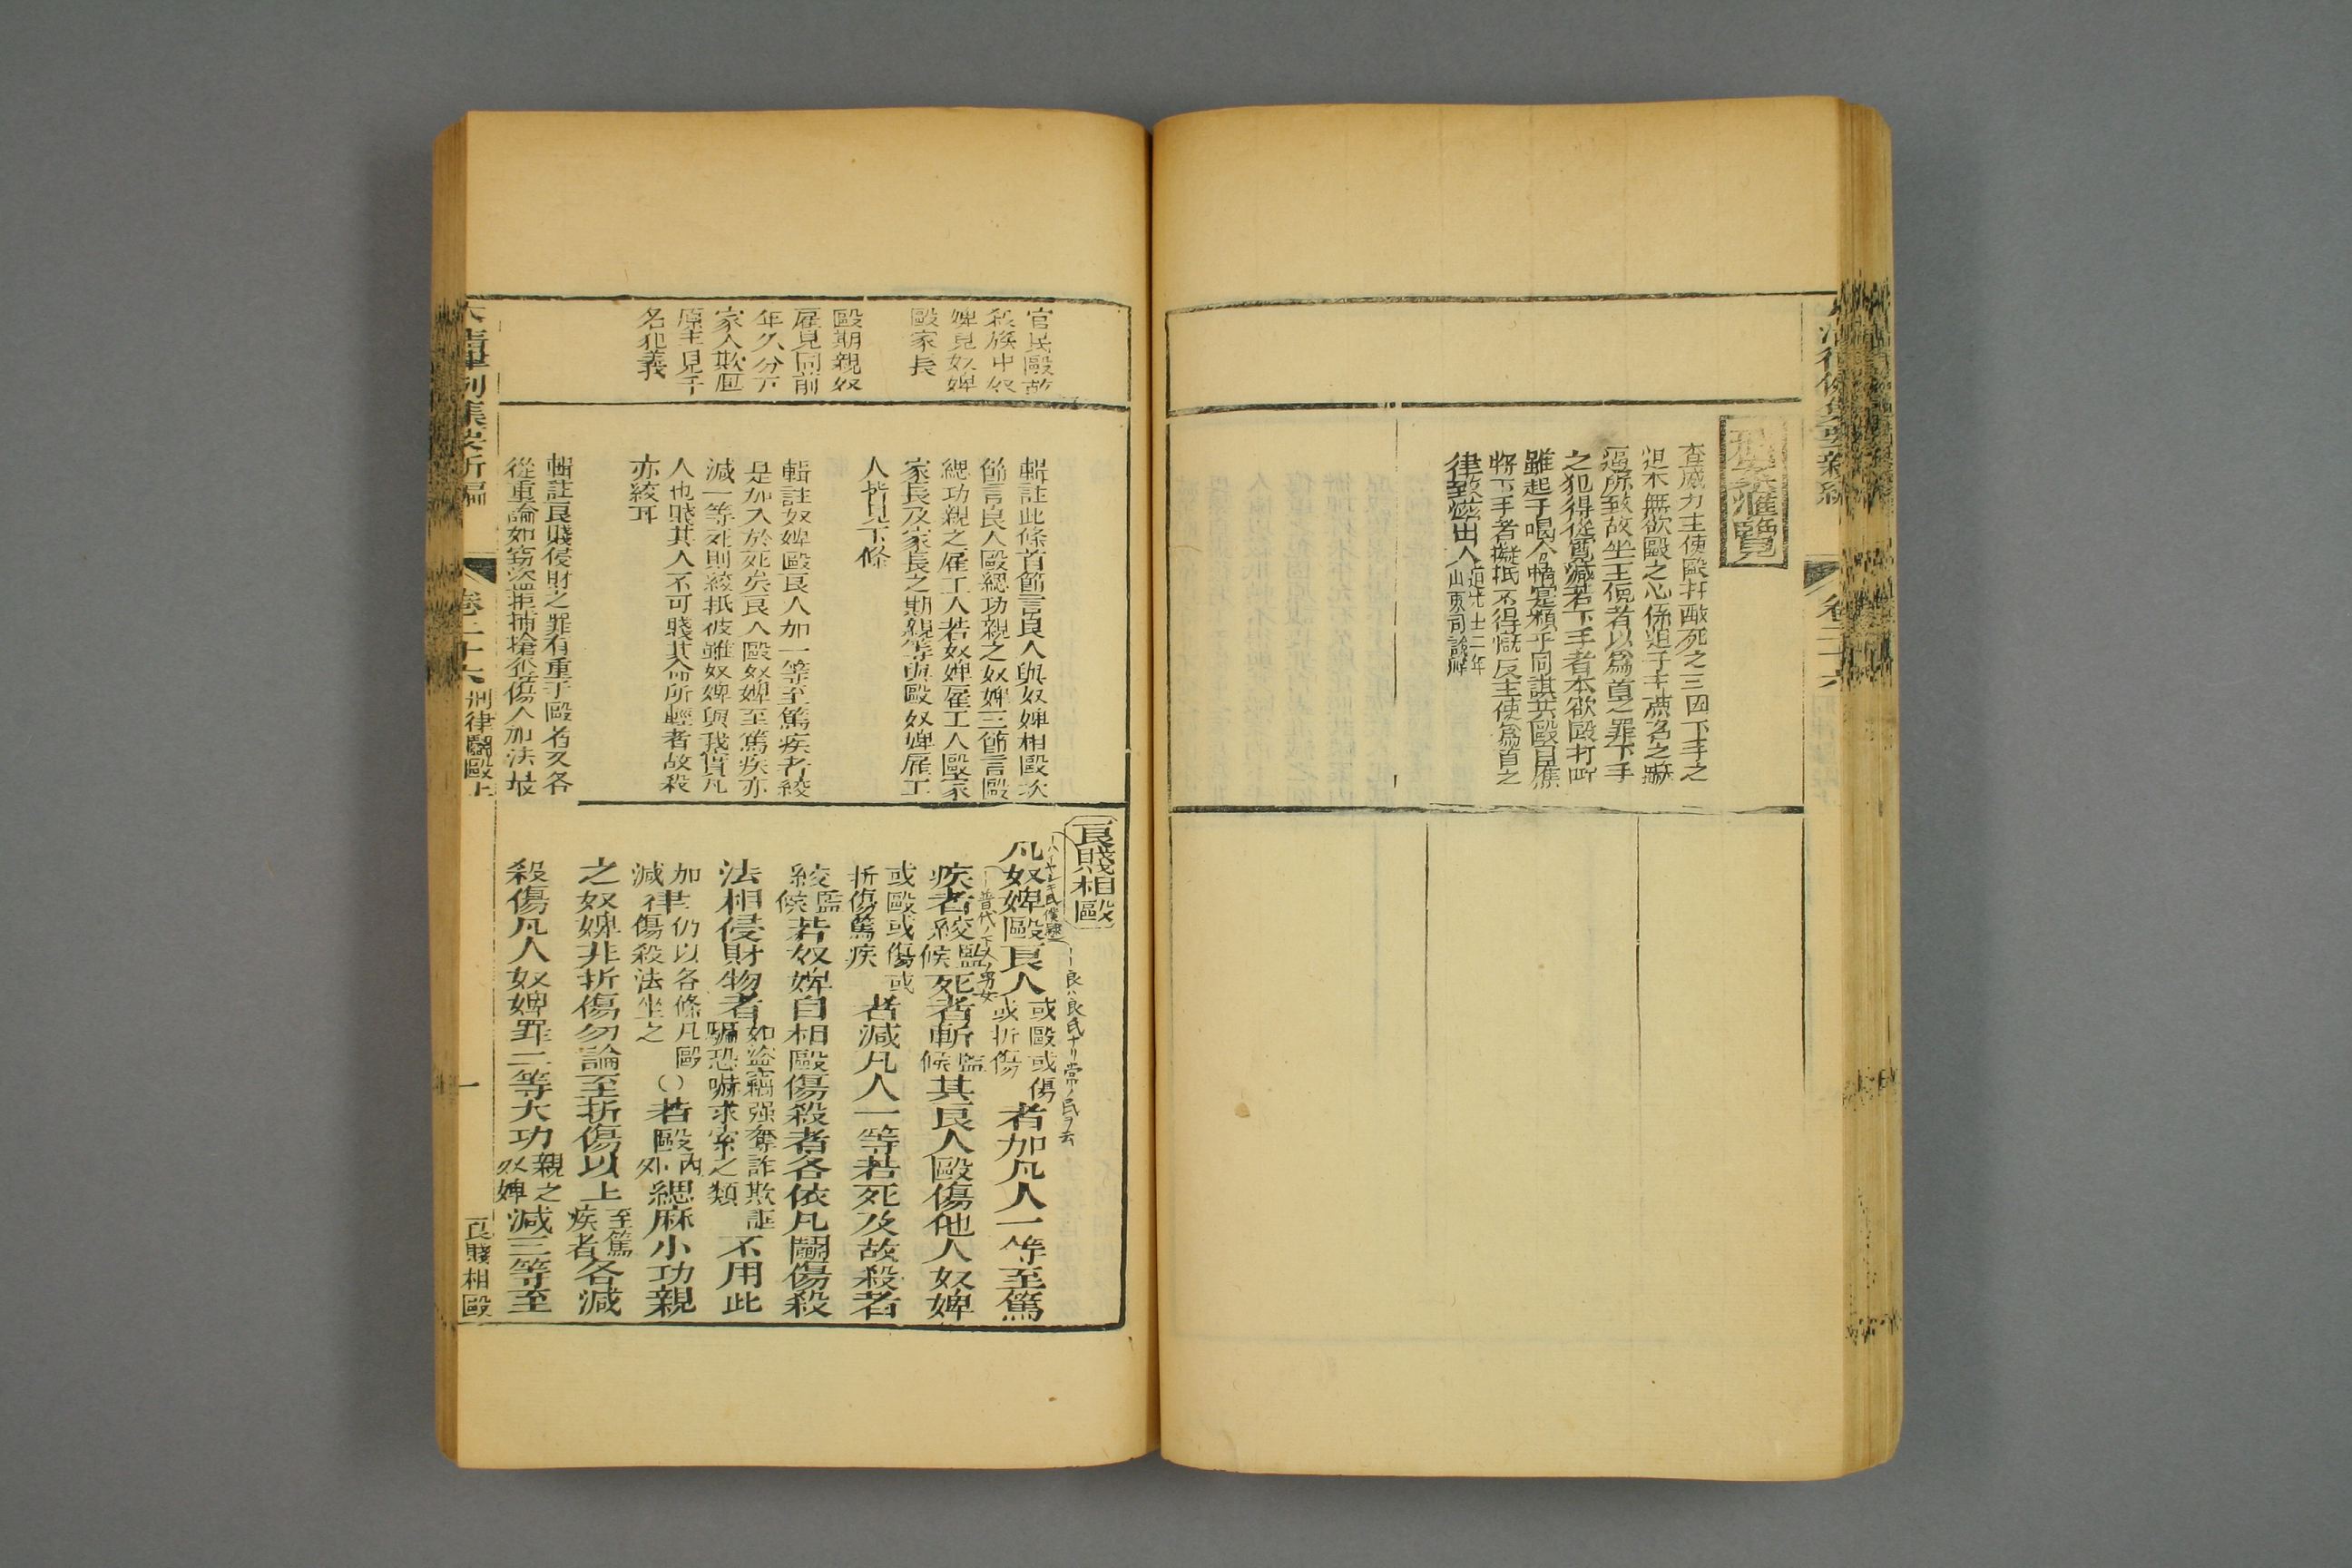 刑案滙覽
查威力主使毆打致死之三因下手之
迫本無欲毆之心係迫于主
逼所致故坐主使者以爲首之罪下手
之犯得從寬減若下手者本欲毆打
雖起于喝令情實類乎同謀共毆自應
將下手者擬抵不得
反主使爲首之
律致滋出入
道光十二年
山東司說帖
卷二十六
官民毆故
殺族中奴
婢見奴婢
毆家長
毆期親奴
雇見同前
年久分
家人欺
原主見子
名犯義
輯註此條首節言良人與奴婢相毆次
節言良人毆緦功親之奴婢三節言毆
緦功親之雇工人若奴婢雇工人毆家
家長及家長之期親等與毆奴婢雇工
人皆見下條
輯註奴婢毆良人加一等至篤疾者絞
是加入於死矣良人毆奴婢至篤疾亦
減一等死則絞抵彼雖奴婢與我實凡
人也賤其人不可賤其命所輕者故殺
亦絞耳
輯註良賤侵財之罪有重于毆者又各
從重論如竊盜拒捕搶奪傷人加法故
良賤相毆
一良ハ良民ナリ常ノ民ヲ云
凡奴婢毆良人
或毆或傷
或折傷
者加凡人一等至篤
一普代ノ下人ノ男女
疾者絞
監
候
死者斬
監
候
其良人毆傷他人奴婢
或毆或傷或
折傷篤疾
者減凡人一等若死及故殺者
絞
監
候
若奴婢自相毆傷殺者各依凡鬬傷殺
法相侵財物者
如盜竊強奪詐欺誆
騙恐嚇求索之類
不用此
加
減
律
仍以各條凡毆
傷殺法坐之
〇若毆
內
外
緦麻小功親
之奴婢非折傷勿論至折傷以上
至篤
疾者
各減
殺傷凡人奴婢罪二等大功
親之
奴婢
減三等至
大清律例集要新編
卷二十六
刑律鬬毆上
一
良賤相毆